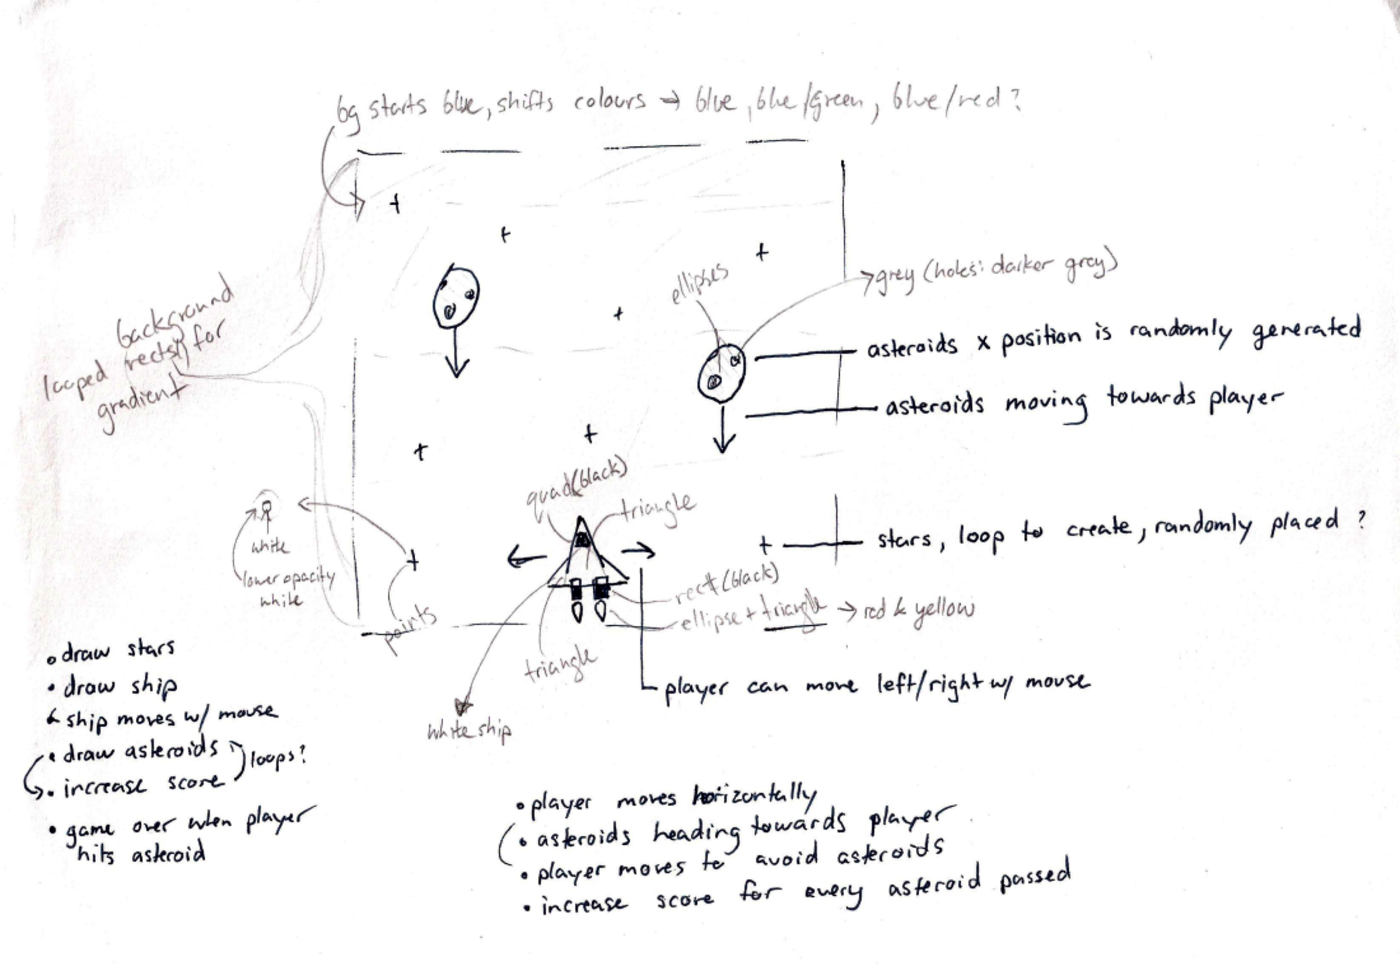 bg starts blue, shifts colours → blue, blue/green, blue/red?
ellipses
grey (holes: darker grey)
background
looped rects for
gradient
asteroids x position is randomly generated
asteroids moving towards player
quad(black)
triangle
stars, loop to create, randomly placed?
white
lower opacity
white
points
rect (black)
ellipse + triangle → red & yellow
triangle
player can move left/right w/ mouse
white ship
• draw stars
• draw ship
ship moves w/ mouse
• draw asteroids
loops?
• increase score
• game over when player
hits asteroid
• player moves horizontally
• asteroids heading towards player
• player moves to avoid asteroids
• increase score for every asteroid passed